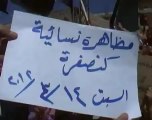 مظاهرة نسائية
كنصفرة
السبت ١٤ / ٤ / ٢٠١٢